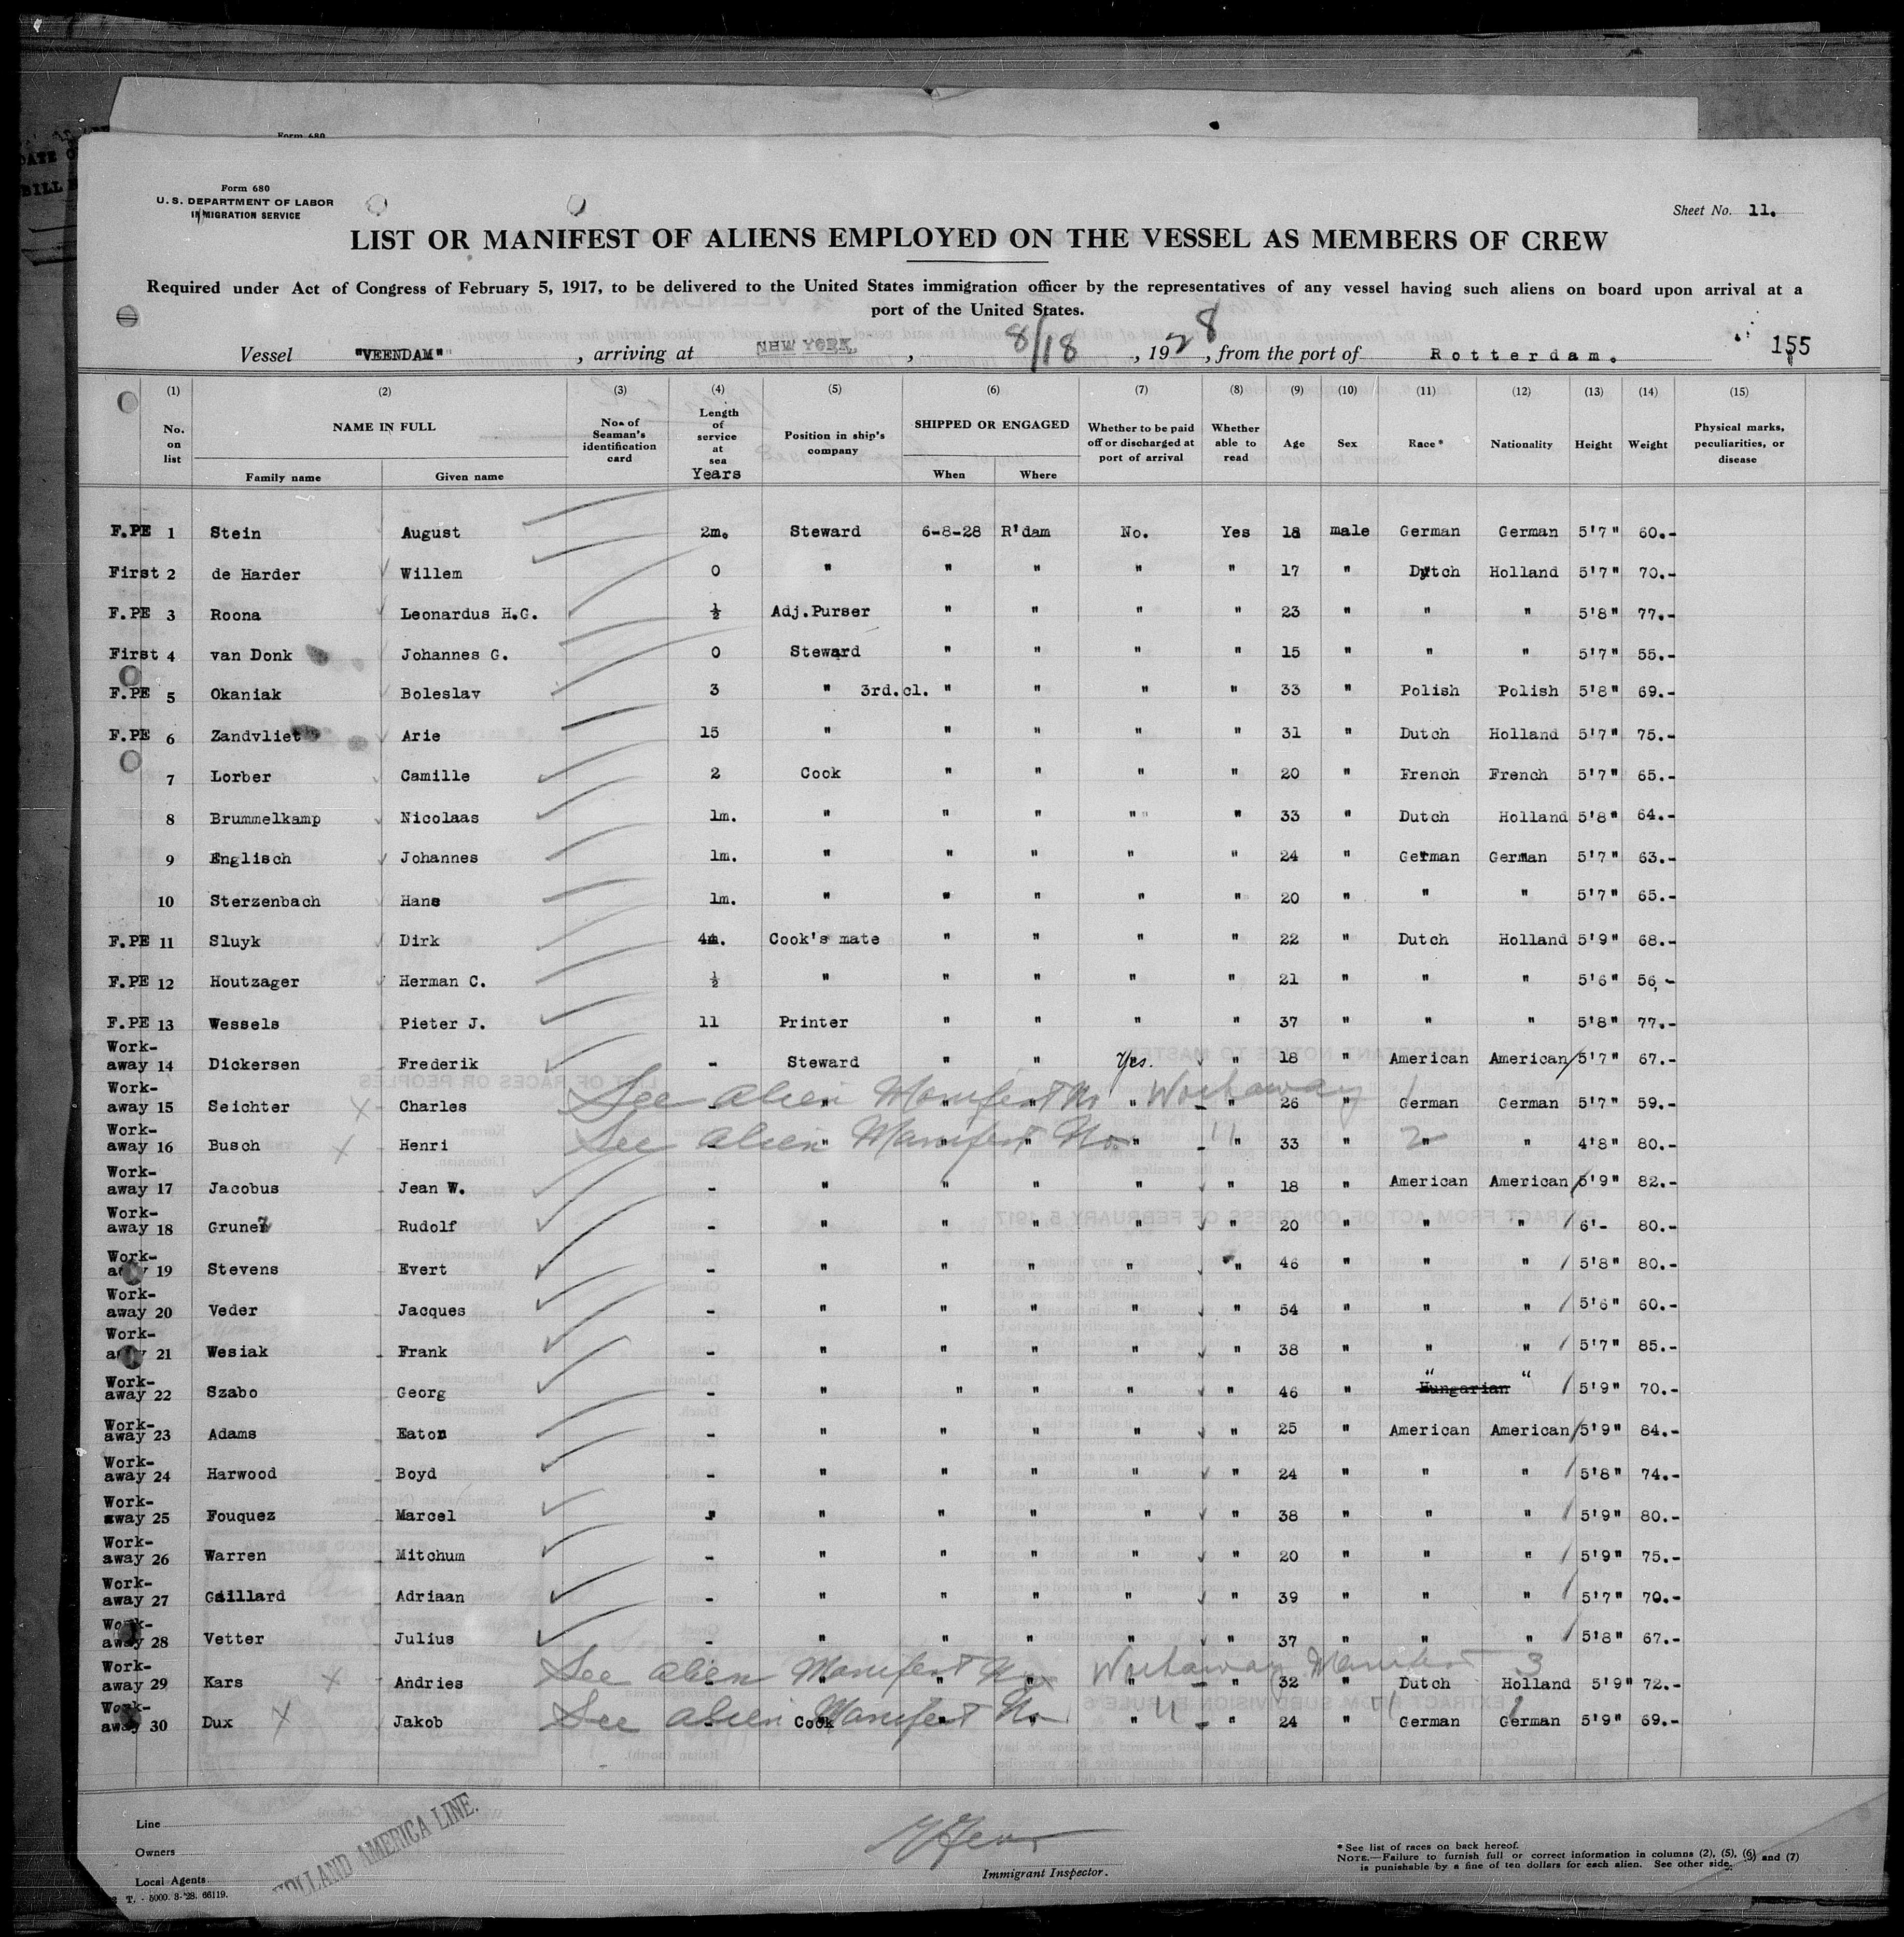 Form 680
U. S. DEPARTMENT OF LABOR
IMMIGRATION SERVICE
Sheet No. 11.
LIST OR MANIFEST OF ALIENS EMPLOYED ON THE VESSEL AS MEMBERS OF CREW
Required under Act of Congress of February 5, 1917, to be delivered to the United States immigration officer by the representatives of any vessel having such aliens on board upon arrival at a
port of the United States.
Vessel "VEENDAM" , arriving at NEW YORK, , 8/18 , 1928 , from the port of Rotterdam. 155
(1) (2) (3) (4) (5) (6) (7) (8) (9) (10) (11) (12) (13) (14) (15)
No. on list NAME IN FULL Family name Given name Nos. of Seaman's identification card Length of service at sea Years Position in ship's company SHIPPED OR ENGAGED When Where Whether to be paid off or discharged at port of arrival Whether able to read Age Sex Race* Nationality Height Weight Physical marks, peculiarities, or disease
F.PE 1 Stein August 2m. Steward 6-8-28 R'dam No. Yes 18 male German German 5'7" 60.-
First 2 de Harder Willem 0 " " " " " 17 " Dutch Holland 5'7" 70.-
F.PE 3 Roona Leonardus H.G. ½ Adj.Purser " " " " 23 " " " 5'8" 77.-
First 4 van Donk Johannes G. 0 Steward " " " " 15 " " " 5'7" 55.-
F.PE 5 Okaniak Boleslav 3 " 3rd.cl. " " " " 33 " Polish Polish 5'8" 69.-
F.PE 6 Zandvliet Arie 15 " " " " " 31 " Dutch Holland 5'7" 75.-
7 Lorber Camille 2 Cook " " " " 20 " French French 5'7" 65.-
8 Brummelkamp Nicolaas 1m. " " " " " 33 " Dutch Holland 5'8" 64.-
9 Englisch Johannes 1m. " " " " " 24 " German German 5'7" 63.-
10 Sterzenbach Hans 1m. " " " " " 20 " " " 5'7" 65.-
F.PE 11 Sluyk Dirk 4m. Cook's mate " " " " 22 " Dutch Holland 5'9" 68.-
F.PE 12 Houtzager Herman C. ½ " " " " " 21 " " " 5'6" 56,-
F.PE 13 Wessels Pieter J. 11 Printer " " " " 37 " " " 5'8" 77.-
Work-away 14 Dickersen Frederik - Steward " " Yes. " 18 " American American 5'7" 67.-
Work-away 15 Seichter X Charles - " " " " " 26 " German German 5'7" 59.-
See Alien Manifest No Workaway 1
Work-away 16 Busch X Henri - " " " " " 33 " " " 4'8" 80.-
See Alien Manifest No. " 2
Work-away 17 Jacobus Jean W. - " " " " " 18 " American American 5'9" 82.-
Work-away 18 Grunez Rudolf - " " " " " 20 " " " 6'- 80.-
Work-away 19 Stevens Evert - " " " " " 46 " " " 5'8" 80.-
Work-away 20 Veder Jacques - " " " " " 54 " " " 5'6" 60.-
Work-away 21 Wesiak Frank - " " " " " 38 " " " 5'7" 85.-
Work-away 22 Szabo Georg - " " " " " 46 " " Hungarian " 5'9" 70.-
Work-away 23 Adams Eaton - " " " " " 25 " American American 5'9" 84.-
Work-away 24 Harwood Boyd - " " " " " 24 " " " 5'8" 74.-
Work-away 25 Fouquez Marcel " " " " " " 38 " " " 5'9" 80.-
Work-away 26 Warren Mitchum - " " " " " 20 " " " 5'9" 75.-
Work-away 27 Gaillard Adriaan - " " " " " 39 " " " 5'7" 70.-
Work-away 28 Vetter Julius - " " " " " 37 " " " 5'8" 67.-
Work-away 29 Kars X Andries - " " " " " 32 " Dutch Holland 5'9" 72.-
See Alien Manifest No Workaway Manifest 3
Work-away 30 Dux X Jakob - Cook " " " " 24 " German German 5'9" 69.-
See Alien Manifest No " " 1
Line
Owners
Local Agents.
HOLLAND AMERICA LINE.
T. - 5000. 3-'28. 66119.
Immigrant Inspector.
* See list of races on back hereof.
NOTE.—Failure to furnish full or correct information in columns (2), (5), (6) and (7)
is punishable by a fine of ten dollars for each alien. See other side.